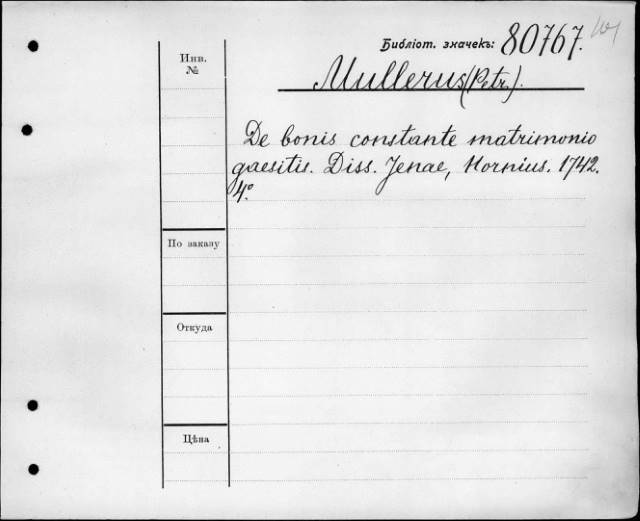 Библіот. значекъ: 80767.
Инв.
№
Mullerus (Petr.).
De bonis constante matrimonio
qaesitis. Diss. Jenae, Hornius. 1742.
4º.
По заказу
Откуда
Цѣна